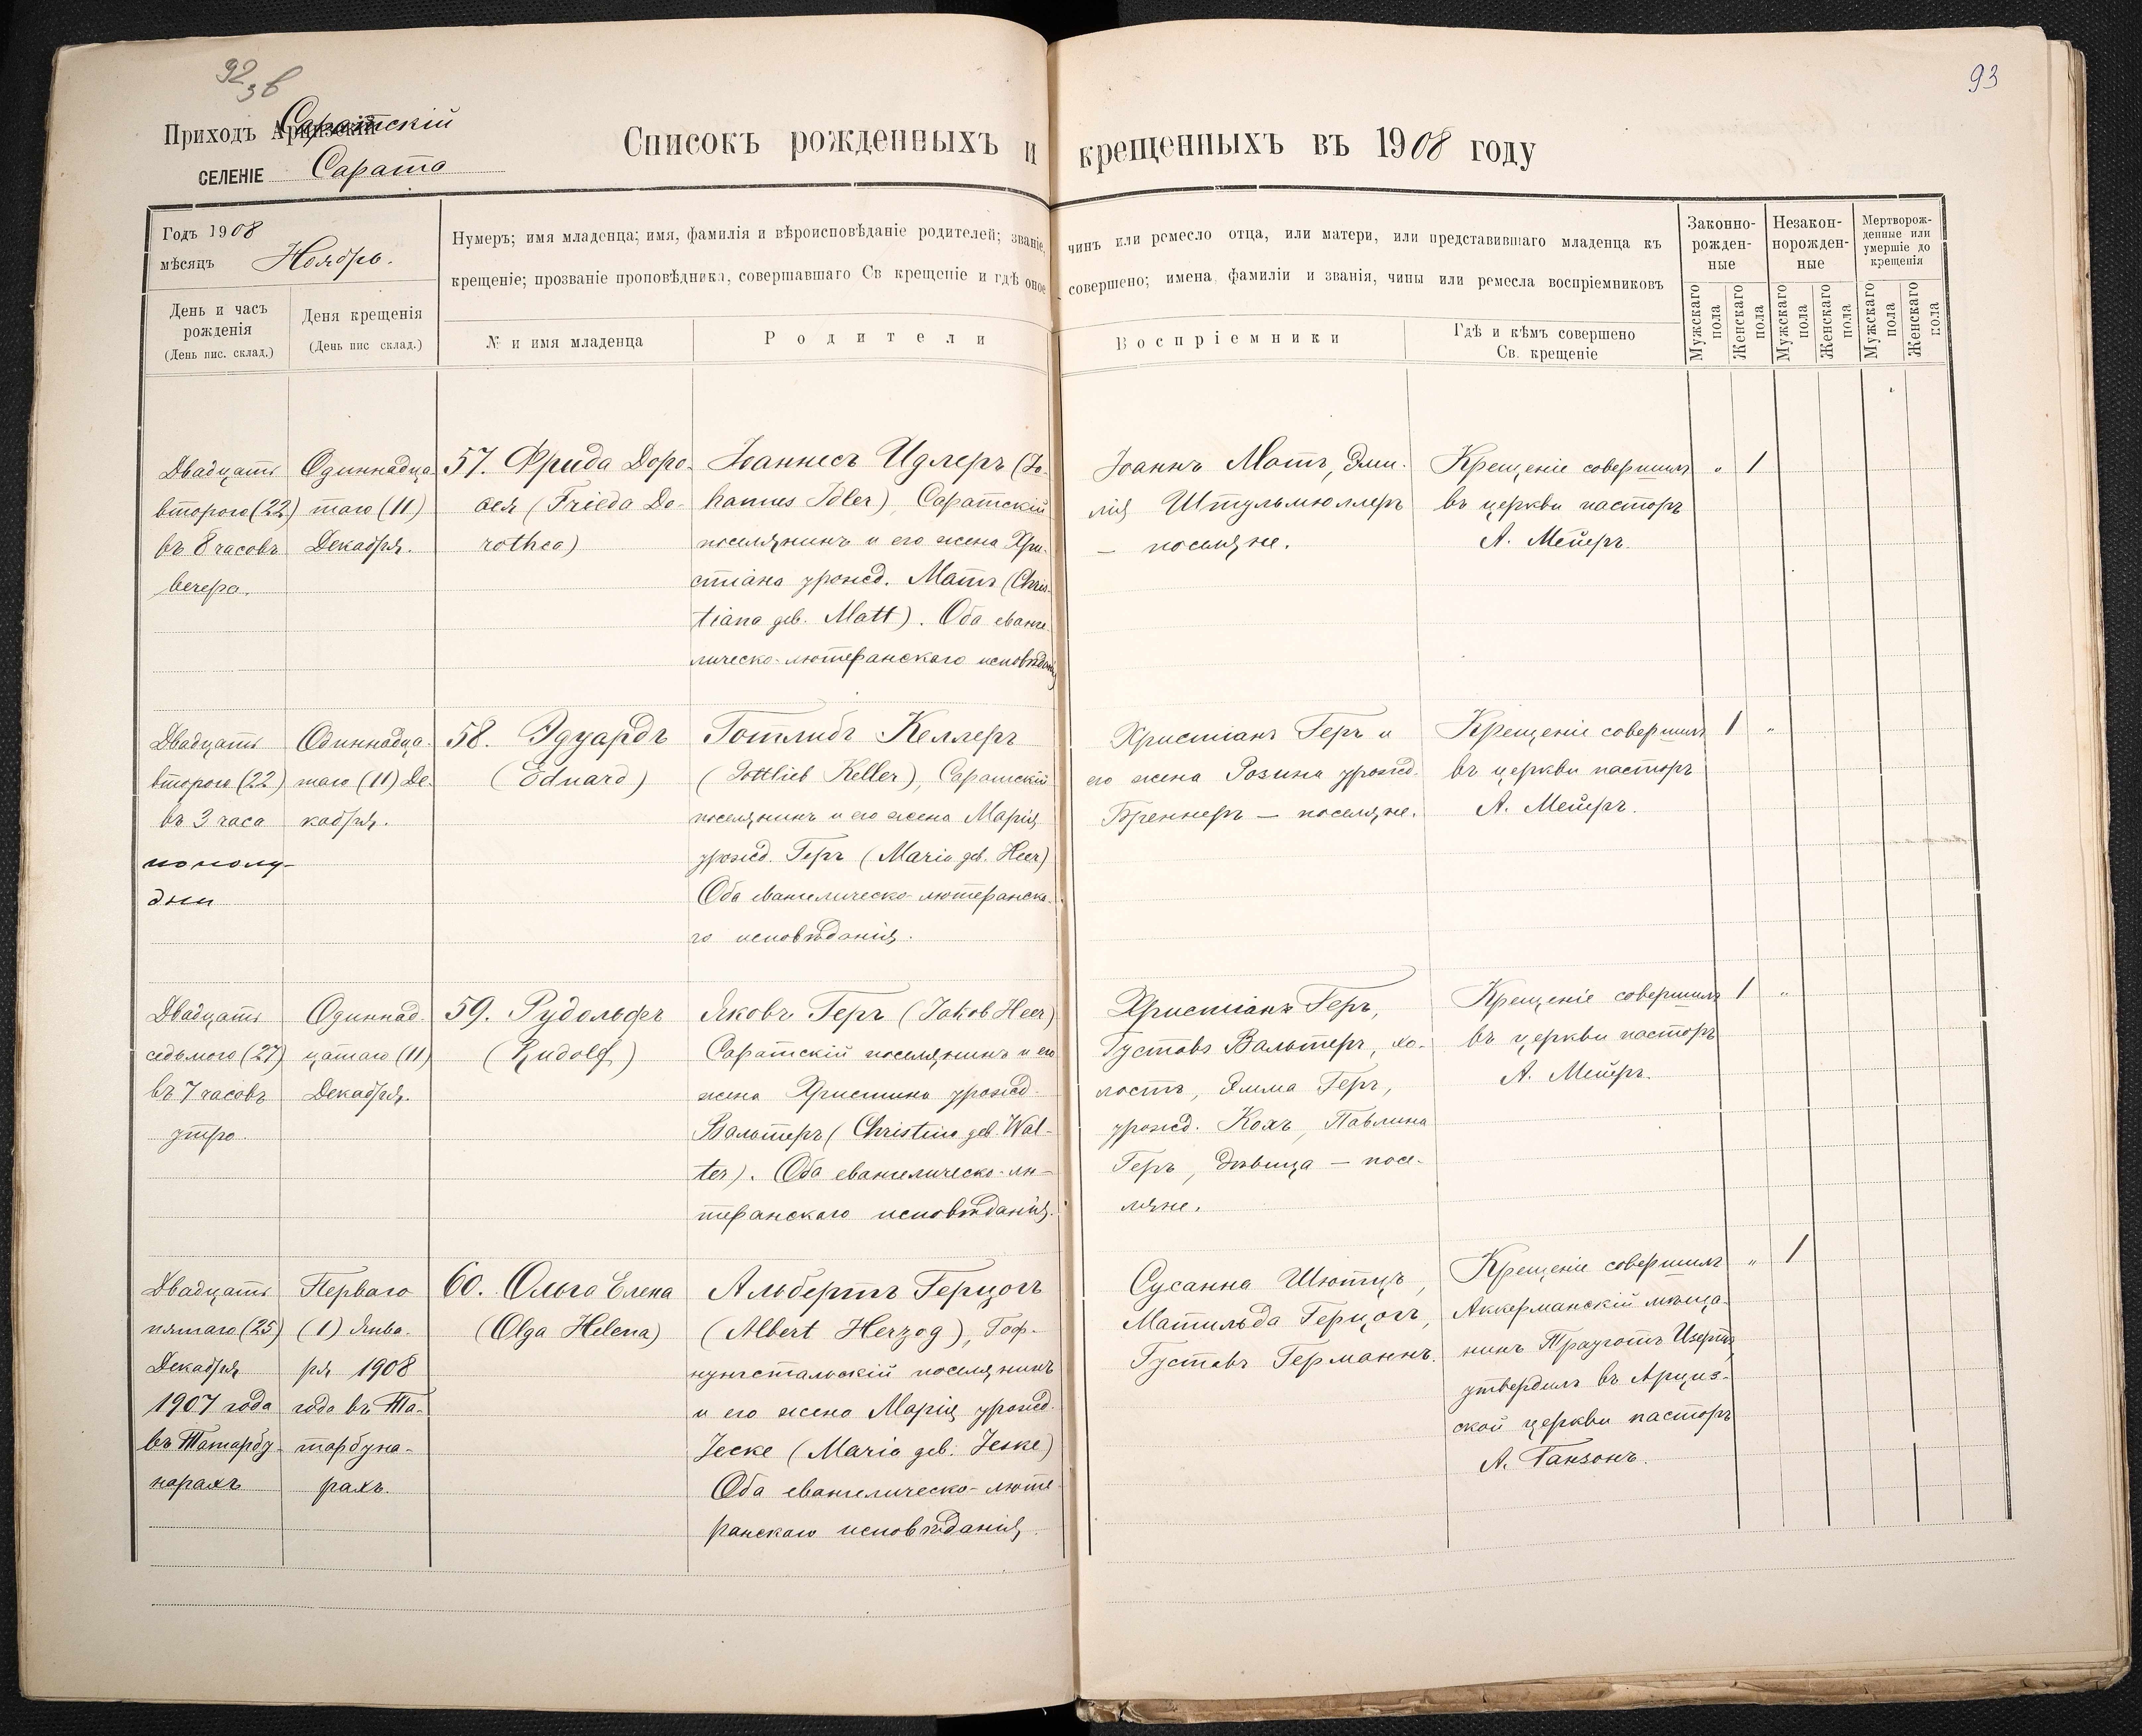 92
зв
93
Приходъ Арцизскій Саратскій
СЕЛЕНІЕ Сарата
Списокъ рожденныхъ и крещенныхъ въ 1908 году
Годъ 1908
мѣсяцъ Ноябрь.
Нумеръ; имя младенца; имя, фамилія и вѣроисповѣданіе родителей; званіе, чинъ или ремесло отца, или матери, или представившаго младенца къ
крещеніе; прозваніе проповѣдника, совершавшаго Св крещеніе и гдѣ оное совершено; имена фамиліи и званія, чины или ремесла воспріемниковъ
День и часъ
рожденія
(День пис. склад.)
Деня крещенія
(День пис склад.)
№ и имя младенца
Родители
Воспріемники
Гдѣ и кѣмъ совершено
Св. крещеніе
Законно-
рожден-
ные
Незакон-
норожден-
ные
Мертворож-
денные или
умершіе до
крещенія
Мужскаго
пола
Женскаго
пола
Мужскаго
пола
Женскаго
пола
Мужскаго
пола
Женскаго
пола
Двадцать
второго (22)
въ 8 часовъ
вечера.
Одиннадца-
таго (11)
Декабря.
57. Фрида Доро-
ѳея (Frieda Do-
rothea)
Іоаннесъ Идлеръ (Jo-
hannes Idler), Саратскій
поселянинъ и его жена Хри-
стіана урожд. Матъ (Chris-
tiana geb. Matt). Оба еванге-
лическо-лютеранскаго исповѣданія
Іоаннъ Матъ, Эми-
лія Штульмюллеръ
— поселяне.
Крещеніе совершилъ
въ церкви пасторъ
А. Мейеръ.
" 1
Двадцать
второго (22)
въ 3 часа
пополу-
дни
Одиннадца-
таго (11) Де-
кабря.
58. Эдуардъ
(Eduard)
Готлибъ Келлеръ
(Gottlieb Keller), Саратскій
поселянинъ и его жена Марія
урожд. Геръ (Maria geb. Heer)
Оба евангелическо-лютеранска-
го исповѣданія.
Христіанъ Геръ и
его жена Розина урожд.
Бреннеръ — поселяне.
Крещеніе совершилъ
въ церкви пасторъ
А. Мейеръ.
1 "
Двадцать
седьмого (27)
въ 7 часовъ
утра.
Одиннад-
цатаго (11)
Декабря.
59. Рудольфъ
(Rudolf)
Яковъ Геръ (Jakob Heer)
Саратскій поселянинъ и его
жена Христина урожд.
Вальтеръ (Christina geb. Wal-
ter). Оба евангелическо-лю-
теранскаго исповѣданія.
Христіанъ Геръ,
Густавъ Вальтеръ, хо-
лостъ, Эмма Геръ,
урожд. Кохъ, Павлина
Геръ, дѣвица — посе-
ляне.
Крещеніе совершилъ
въ церкви пасторъ
А. Мейеръ.
1 "
Двадцать
пятаго (25)
Декабря
1907 года
въ Татарбу-
нарахъ
Перваго
(1) Янва-
ря 1908
года въ Та-
тарбуна-
рахъ.
60. Ольга Елена
(Olga Helena)
Альбертъ Герцогъ
(Albert Herzog), Гоф-
нунгстальскій поселянинъ
и его жена Марія урожд.
Іеске (Maria geb. Jeske)
Оба евангелическо-люте-
ранскаго исповѣданія.
Сусанна Шютцъ,
Матильда Герцогъ,
Густавъ Германнъ.
Крещеніе совершилъ
Аккерманскій мѣща-
нинъ Трауготъ Изертъ,
утвердилъ въ Арциз-
ской церкви пасторъ
А. Ганзонъ.
" 1